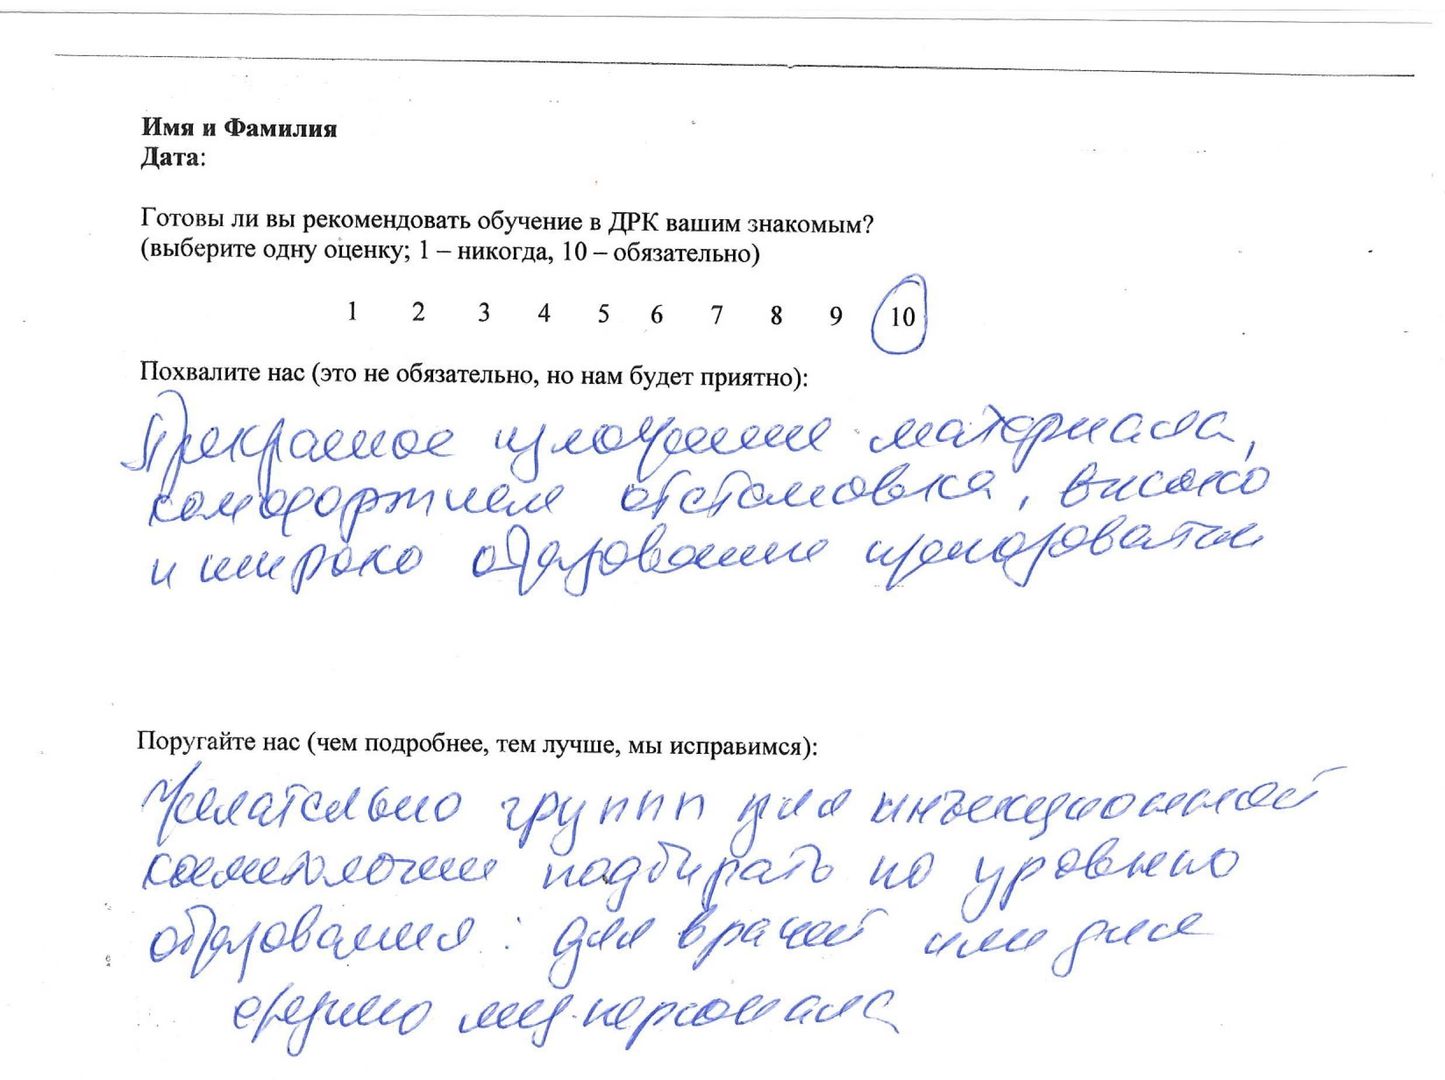 Имя и Фамилия
Дата:
Готовы ли вы рекомендовать обучение в ДРК вашим знакомым?
(выберите одну оценку; 1 – никогда, 10 – обязательно)
1 2 3 4 5 6 7 8 9 10
Похвалите нас (это не обязательно, но нам будет приятно):
Прекрасное изложение материала,
комфортная обстановка, высоко
и широко образование преподаватели
Поругайте нас (чем подробнее, тем лучше, мы исправимся):
Желательно групп для инъекционной
косметологии подбирать по уровню
образования: для врачей или для
средного мед. персонала